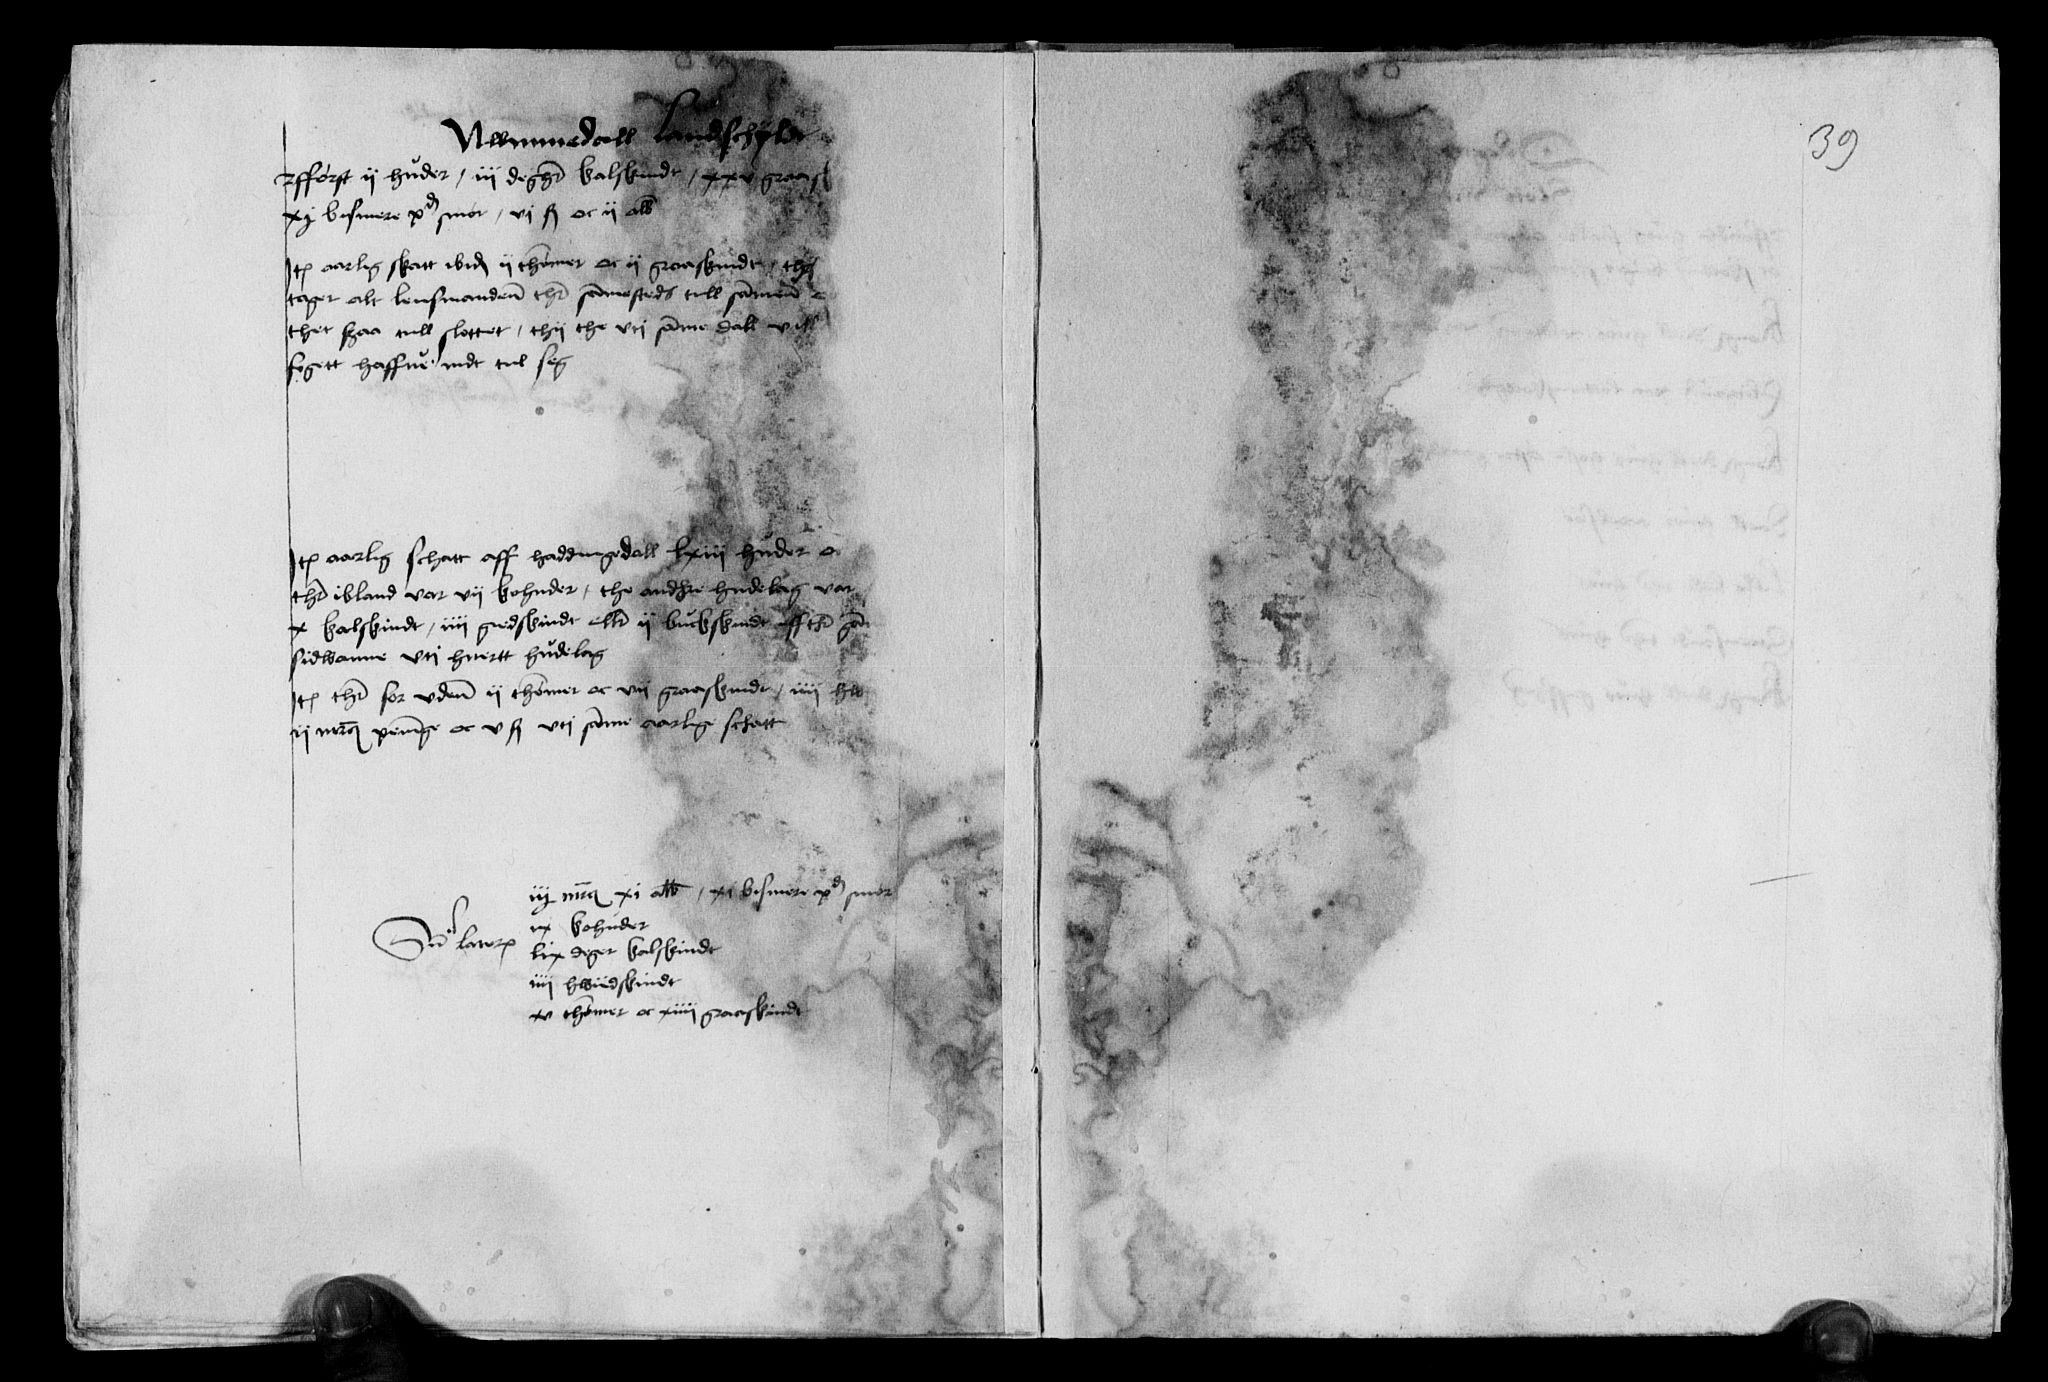 Nwmmedall landschyld
Fførst ij huder / iij degher kalskindt / xxv graask
xj bismere pd smør / vj ß oc ij alb
Itp aarlig skatt ibid ij thømer oc ij graaskindt / thz
tager alt lensmanden ther samesteds till sammen
thet gaa till slottet / thij the vti samme dall
haffue indt til seg
Itp aarlig schatt aff haddingedall lxiij huder oc
ther ibland var vij kohuder / the andhre hudelag var
x kalskindt / iiij giedskindt eller ij buckskindt effther gam
sidwanne vti huertt hudelag
Itp ther for vden ij thømer oc vij graaskindt / iiij hw
ij mrc peninge oc v ß vti samme aarlige schatt
Sum laterp
iij mrc xj alb / xj bismere pd smør
ix kohuder
lix deger kalskindt
iiij hwidskindt
xv thømer oc xiiij graaskindt
39